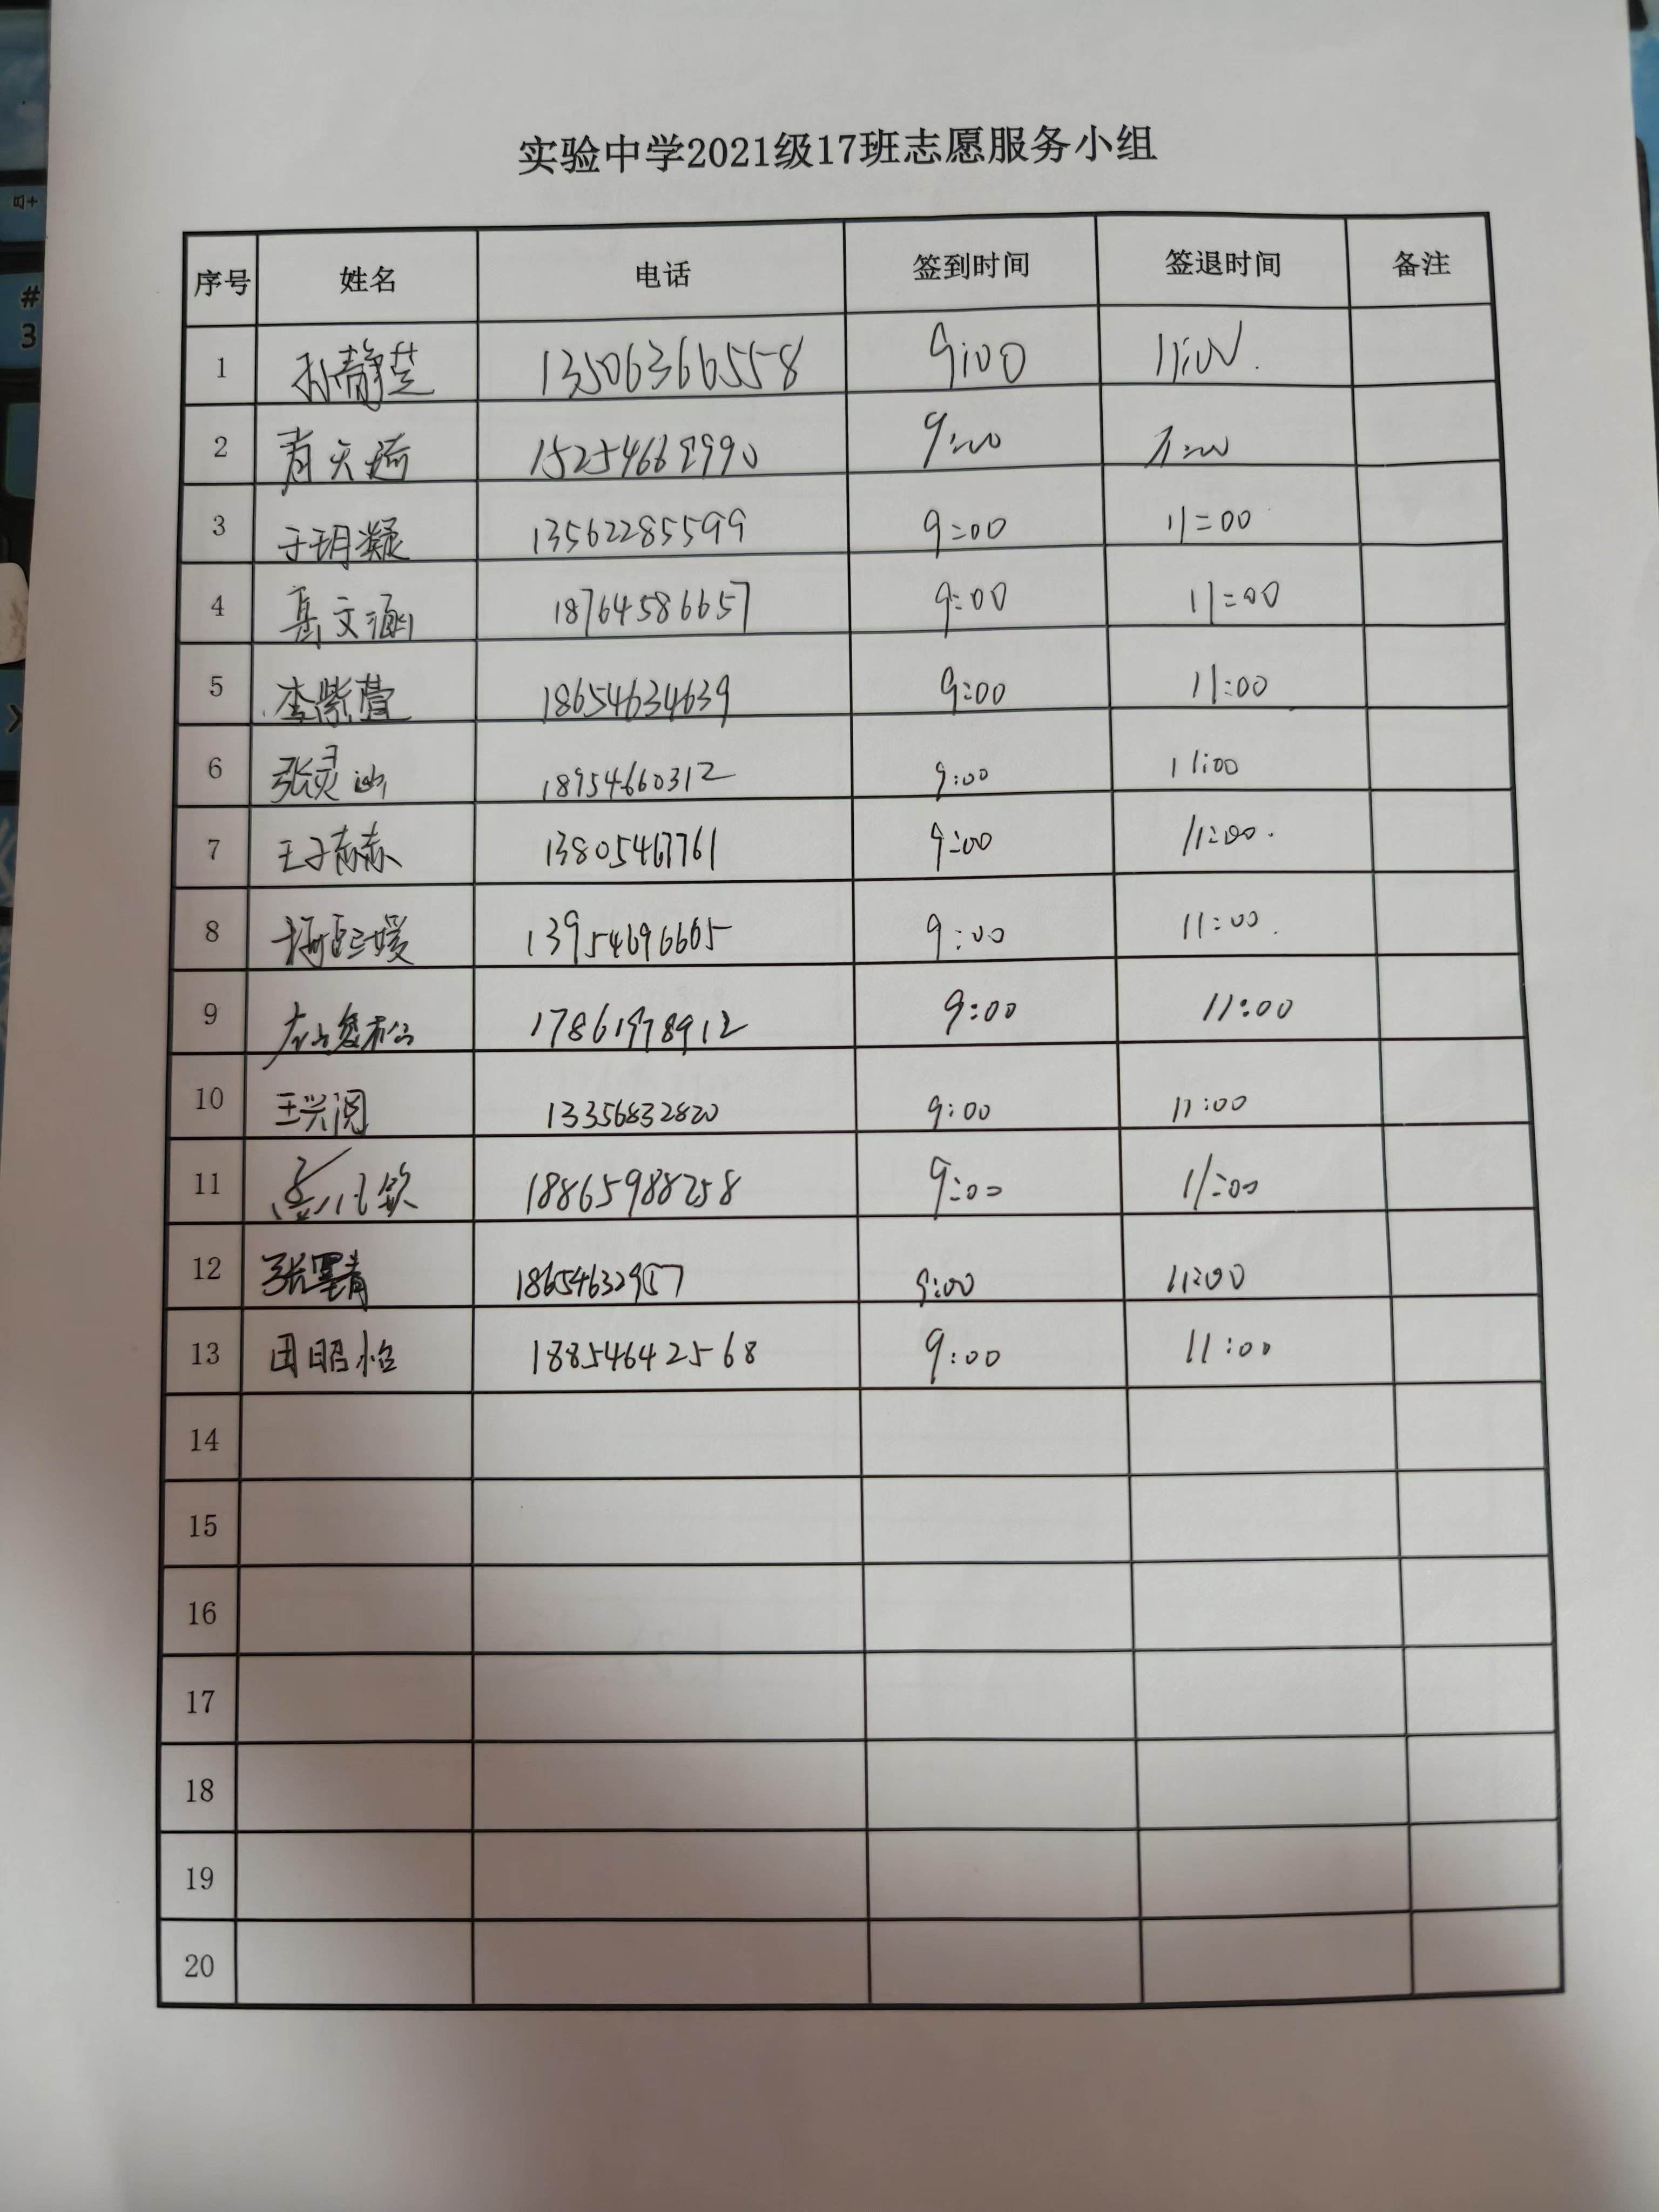 实验中学2021级17班志愿服务小组
序号 姓名 电话 签到时间 签退时间 备注
1 孙静芸 13506366558 9:00 11:00
2 天琦 15254669990 9:00 11:00
3 于玥凝 13562285599 9=00 11=00
4 文涵 18764586657 9:00 11=00
5 李紫萱 18654634639 9:00 11:00
6 张灵 18954660312 9:00 11:00
7 王子 13805467761 9:00 11:00
8 13954696605 9:00 11:00
9 17861978912 9:00 11:00
10 王兴阅 13356832820 9:00 11:00
11 18865988258 9:00 11:00
12 张 18654632957 9:00 11:00
13 田昭怡 18854642568 9:00 11:00
14
15
16
17
18
19
20
# 3